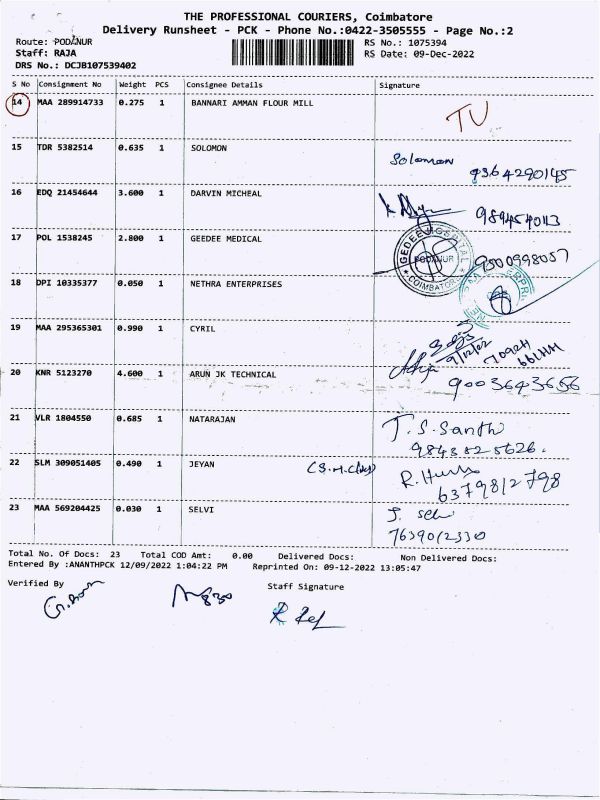 THE PROFESSIONAL COURIERS, Coimbatore
Delivery Runsheet - PCK - Phone No.:0422-3505555 - Page No.:2
Route: PODANUR
RS No.: 1075394
Staff: RAJA
RS Date: 09-Dec-2022
DRS No.: DCJB107539402
S No Consignment No Weight PCS Consignee Details Signature
14 MAA 289914733 0.275 1 BANNARI AMMAN FLOUR MILL
15 TDR 5382514 0.635 1 SOLOMON Soloman
9364290145
16 EDQ 21454644 3.600 1 DARVIN MICHEAL
17 POL 1538245 2.800 1 GEEDEE MEDICAL 9500998057
GEDEE HOSPITAL PODANUR COIMBATORE
18 DPI 10335377 0.050 1 NETHRA ENTERPRISES
19 MAA 295365301 0.990 1 CYRIL
9/12/22
20 KNR 5123270 4.600 1 ARUN JK TECHNICAL
21 VLR 1804550 0.685 1 NATARAJAN T.S.Santhi
22 SLM 309051405 0.490 1 JEYAN
6379812798
23 MAA 569204425 0.030 1 SELVI
7639012330
Total No. Of Docs: 23 Total COD Amt: 0.00 Delivered Docs: Non Delivered Docs:
Entered By :ANANTHPCK 12/09/2022 1:04:22 PM Reprinted On :09-12-2022 13:05:47
Verified By
Staff Signature